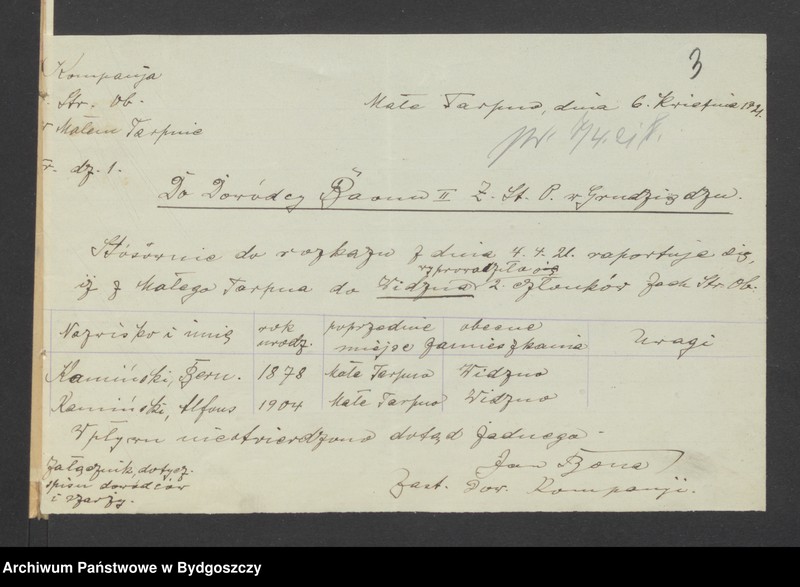 3
Kompanja
Str. Ob.
w Małem Tarpnie
dz. 1.
Małe Tarpno, dnia 6. Kwietnia 1921.
Do Dowódcy Baonu II Z. St. P. w Grudziądzu.
Stósownie do rozkazu z dnia 4. 4. 21. raportuje się,
wyprowadziło się
iż z Małego Tarpna do Widzna 2. członków Zach Str. Ob.
Nazwisko i imię rok urodz. poprzednie obecne miejsce zamieszkania Uwagi
Kamiński, Bern. 1878 Małe Tarpno Widzno
Kamiński, Alfons 1904 Małe Tarpno Widzno
Wpływu niestwierdzono dotąd żadnego.
Załącznik dotycz.
spisu dowódców
i szarży.
Jan
Zast. Dow. Kompanji.
Archiwum Państwowe w Bydgoszczy